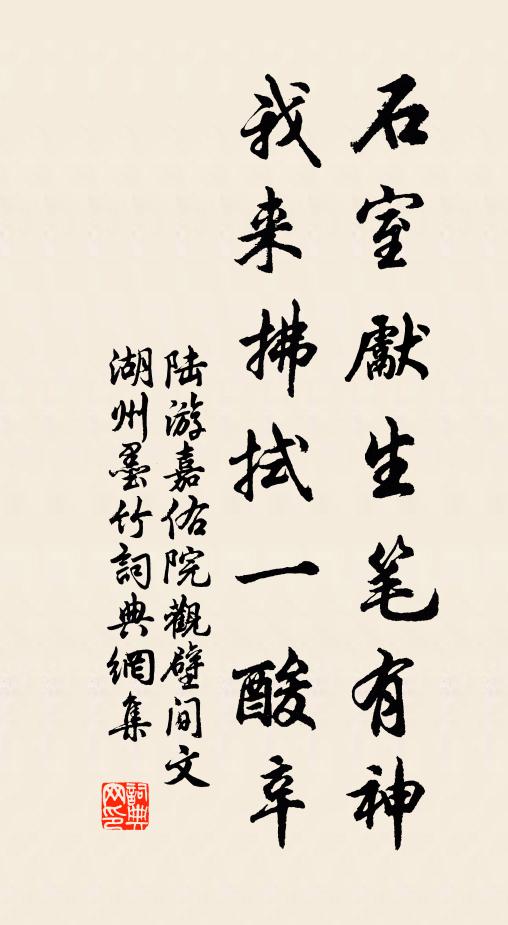 石室獻生笔有神
我来拂拭一酸辛
陆游嘉佑院觀壁间文
湖州墨竹詞典網集
詞典网印